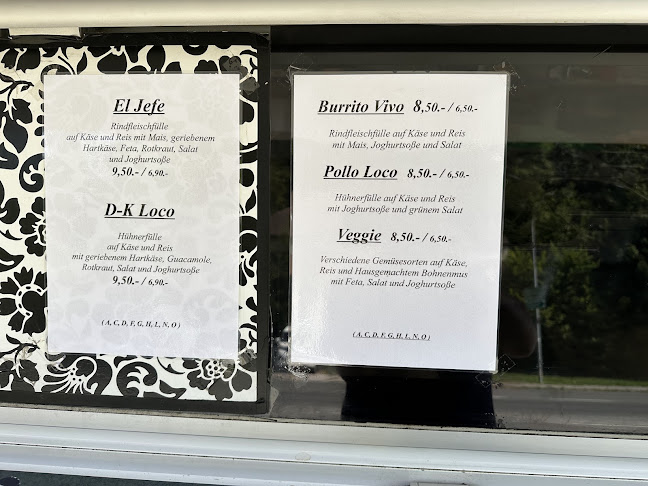 El Jefe
Rindfleischfülle
auf Käse und Reis mit Mais, geriebenem
Hartkäse, Feta, Rotkraut, Salat
und Joghurtsoße
9,50.- / 6,90.-
D-K Loco
Hühnerfülle
auf Käse und Reis
mit geriebenem Hartkäse, Guacamole,
Rotkraut, Salat und Joghurtsoße
9,50.- / 6,90.-
( A, C, D, F, G, H, L, N, O )
Burrito Vivo 8,50.- / 6,50.-
Rindfleischfülle auf Käse und Reis
mit Mais, Joghurtsoße und Salat
Pollo Loco 8,50.- / 6,50.-
Hühnerfülle auf Käse und Reis
mit Joghurtsoße und grünem Salat
Veggie 8,50.- / 6,50.-
Verschiedene Gemüsesorten auf Käse,
Reis und Hausgemachtem Bohnenmus
mit Feta, Salat und Joghurtsoße
( A, C, D, F, G, H, L, N, O )